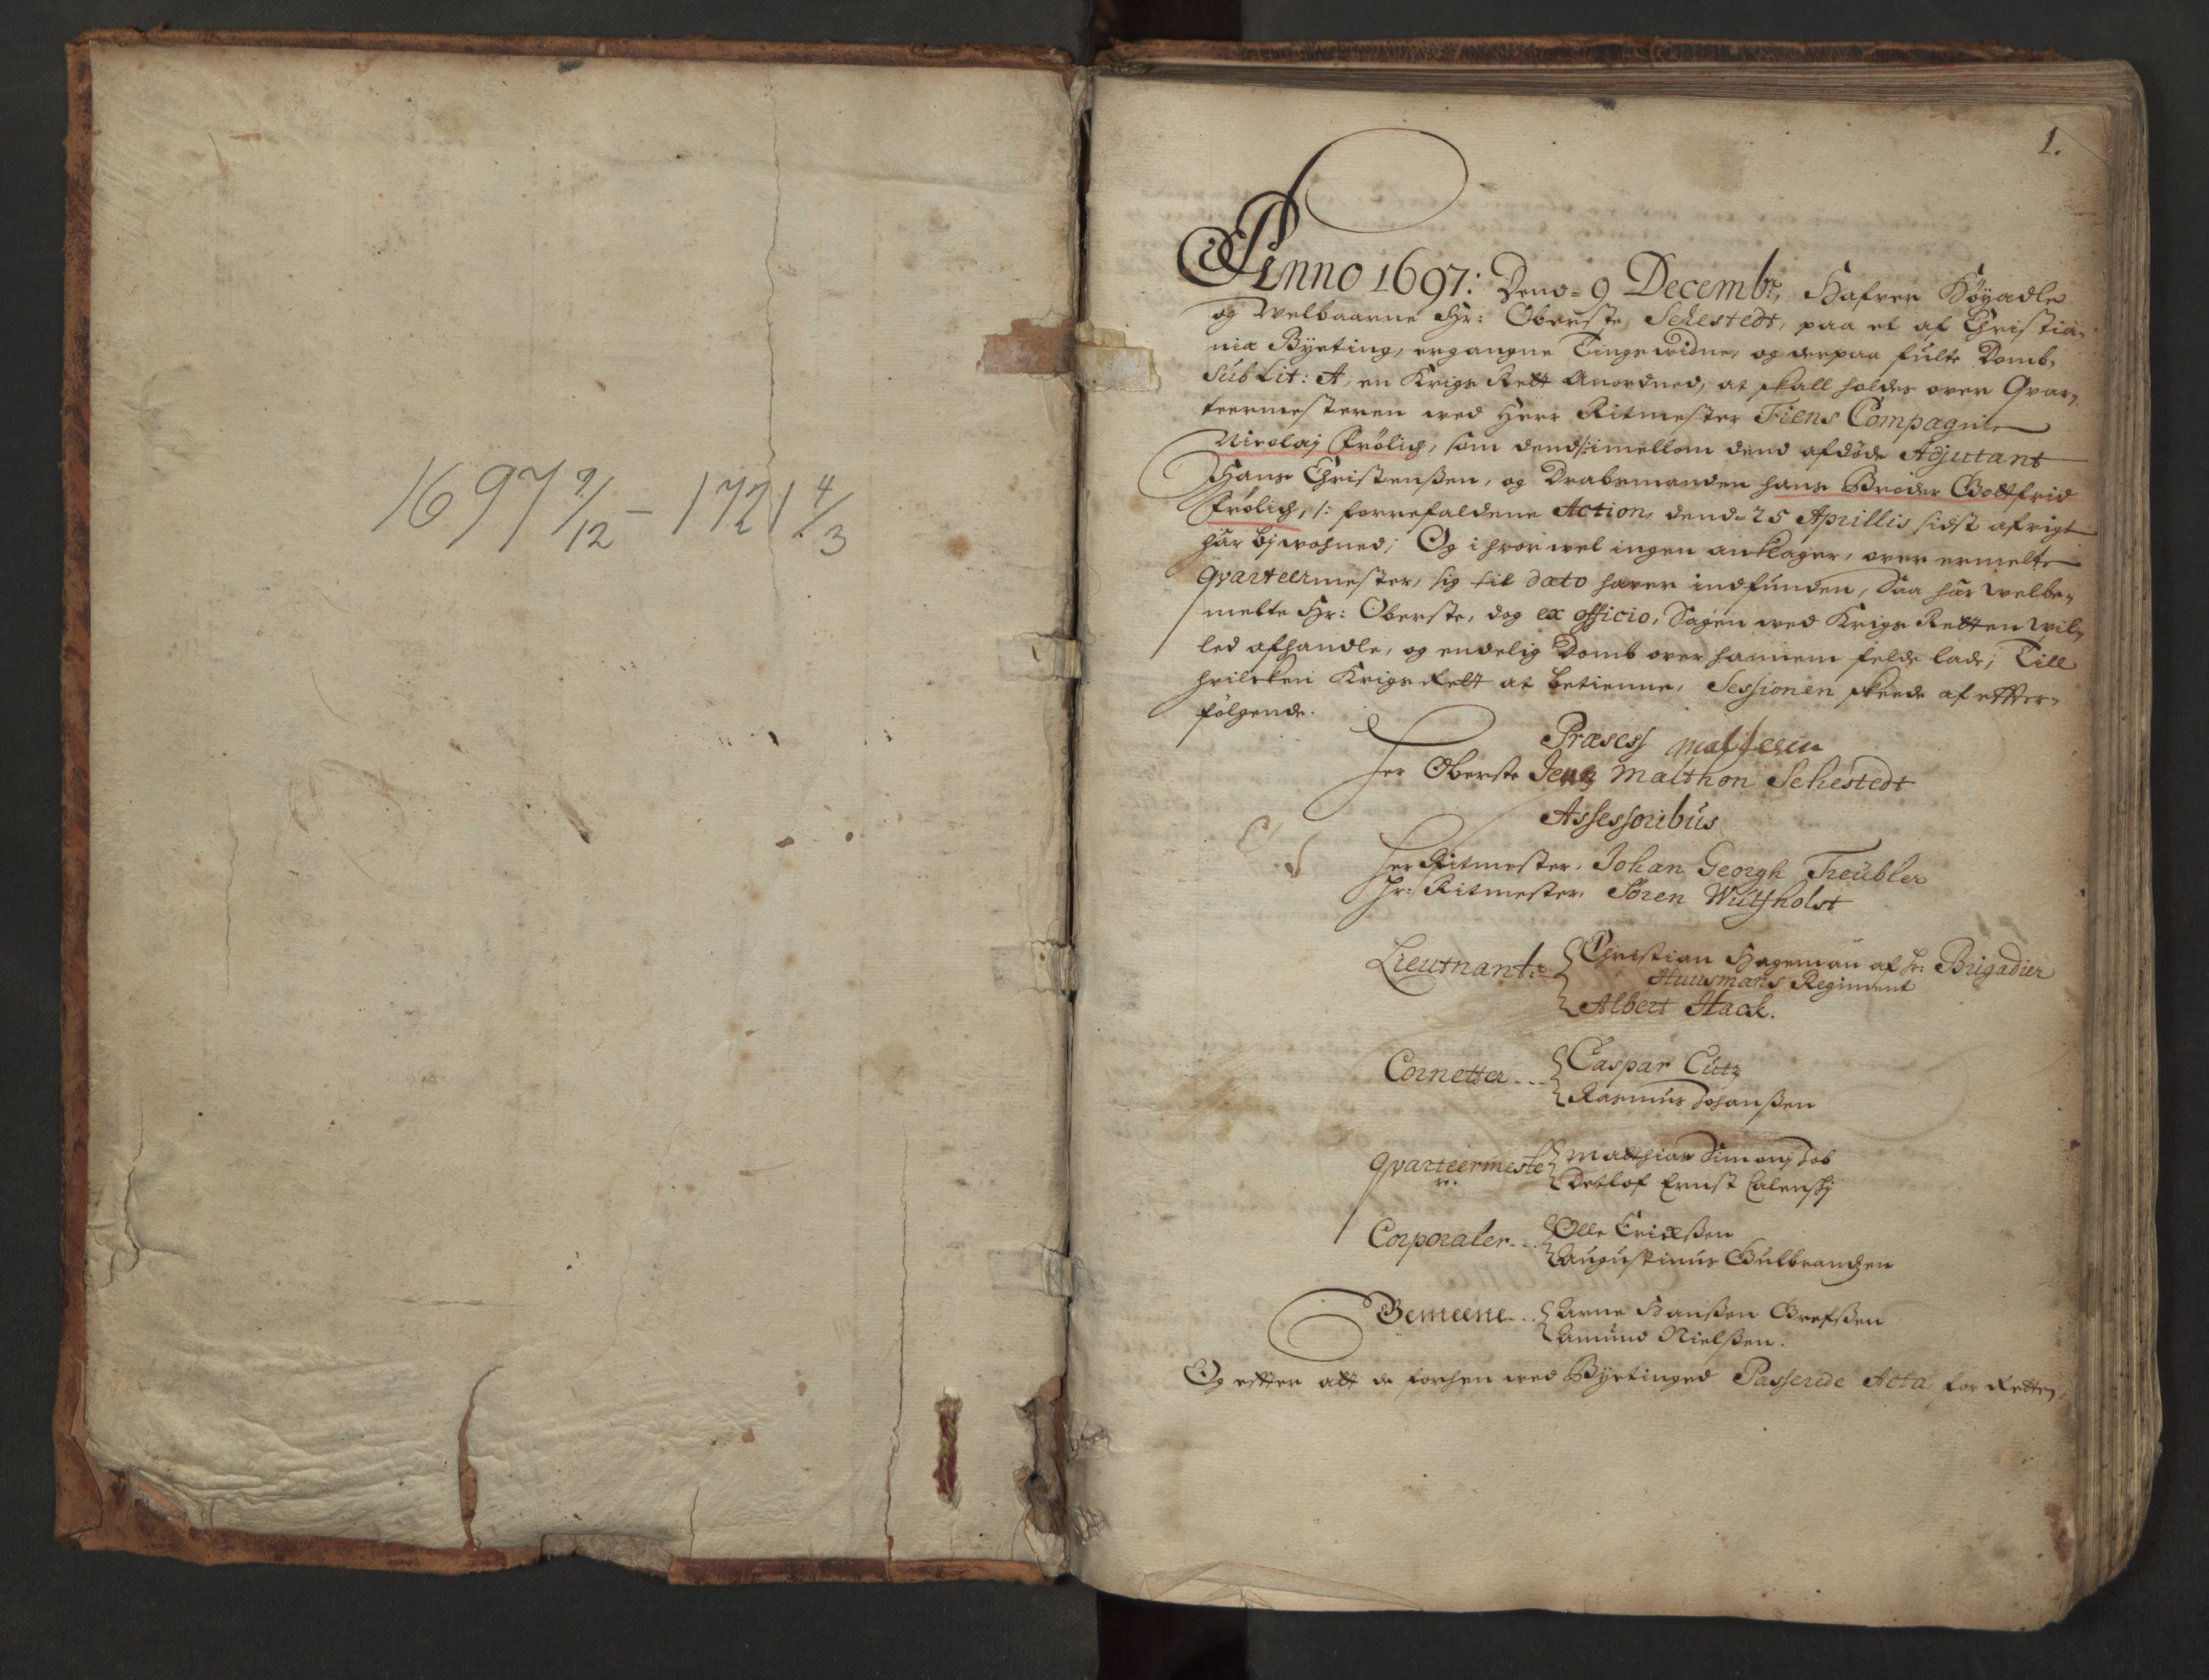 1697 9/12 – 1721 4/3
1.
Anno 1697: Dend= 9 Decembr, Hafver Höÿadle
og Welbaarne Hr: Oberste Sehestedt, paa et af Christia-
nia Byeting, ergangne Tingswidne, og derpaa fulte Domb,
Sub Lit: A, en Krigs Rett Anordned, at skall holdes over Qvar-
teermesteren ved Herr Ritmester Fiens Compagnie
Nicolaj Frölich, som dend /: imellom dend afdöde Adjutant
Hans Christenßen, og Drabsmanden hans Broder Gottfrid
Frölich, :/ forrefaldene Action, dend= 25 Aprillis sidst afvigt
har bijwohned; Og i hvorwel ingen anklager, over ermelte
Qvarteermester, sig til dato haver indfunden, Saa har welbe-
melte Hr: Oberste, dog ex officio, Sagen ved Krigs Retten wil-
led afhandle, og endelig Domb over hannem felde lade; Till
hvilcken Krigs Rett at betienne, Sessionen skeede af efter-
fölgende.
Præses
Her Oberste Jens Malthon Sehestedt
Assessoribus
Her Ritmester, Johan Georgh Treübler
Hr: Ritmester Sören Wulfsholst
Lieutnant: Christian Hageman af Hr: Brigadier
Huusmans Regiment
Albert Hack.
Cornetter - - - Caspar Cutz
Rasmus Johanßen
Qvarteermeste Matthias Simon Job
r. Detlof Ernst Calenskj
Corporaler - - . Olle Erichßen
Augustinus Gulbrandzen
Gemeene - . . Arne Hanßen Grefßen
Amund Nielßen.
Og effter att de forhen wed Byetinged Passerede Acta, for Retten,